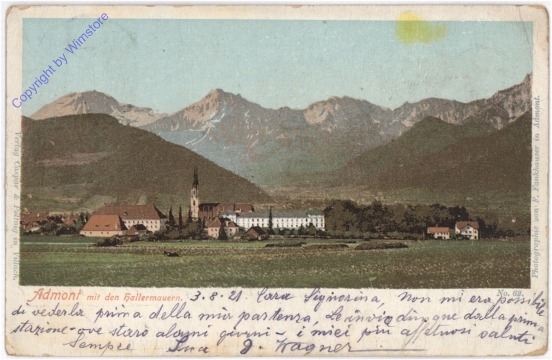 Copyright by Wimstore
Verlag
Photographie von F. Funkhauser in Admont.
Admont mit den Hallermauern.
No. 62.
3-8-21 Cara Signorina, Non mi era possibile
di vederla prima della mia partenza. Le invio dunque dalla prima
stazione - ove starò alcuni giorni - i miei più affettuosi saluti.
Sempre Sua J. Wagner